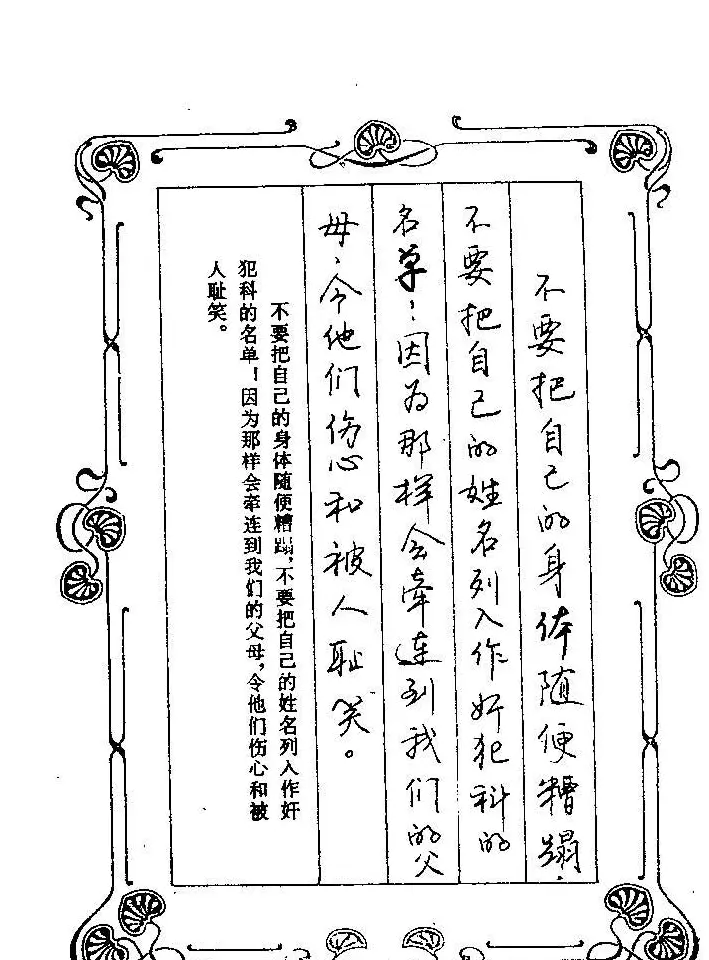 不要把自己的身体随便糟蹋，
不要把自己的姓名列入作奸犯科的
名单！因为那样会牵连到我们的父
母，令他们伤心和被人耻笑。
不要把自己的身体随便糟蹋，不要把自己的姓名列入作奸
犯科的名单！因为那样会牵连到我们的父母，令他们伤心和被
人耻笑。